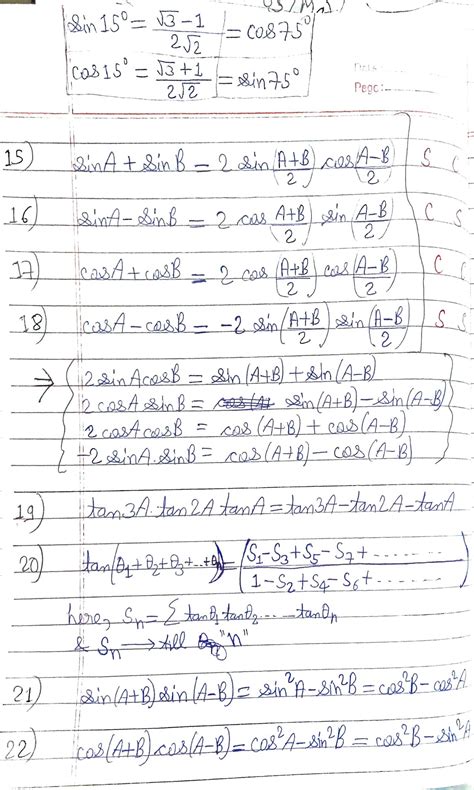 sin15° = √3-1/2√2 = cos75°
cos15° = √3+1/2√2 = sin75°
Page:
15) sinA + sinB = 2 sin(A+B/2) cos(A-B/2) S C
16) sinA - sinB = 2 cos(A+B/2) sin(A-B/2) C S
17) cosA + cosB = 2 cos(A+B/2) cos(A-B/2) C C
18) cosA - cosB = -2 sin(A+B/2) sin(A-B/2) S S
→ 2sinAcosB = sin(A+B) + sin(A-B)
2cosA sinB = sin(A+B) - sin(A-B)
2cosAcosB = cos(A+B) + cos(A-B)
-2sinA.sinB = cos(A+B) - cos(A-B)
19) tan3A.tan2A tanA = tan3A-tan2A-tanA
20) tan(θ1+θ2+θ3+...+θn) = (S1-S3+S5-S7+....... / 1-S2+S4-S6+.......)
here, Sn = Σ tanθ1 tanθ2 ..... tanθn
& Sn → till "n"
21) sin(A+B) sin(A-B) = sin²A-sin²B = cos²B-cos²A
22) cos(A+B) cos(A-B) = cos²A-sin²B = cos²B-sin²A